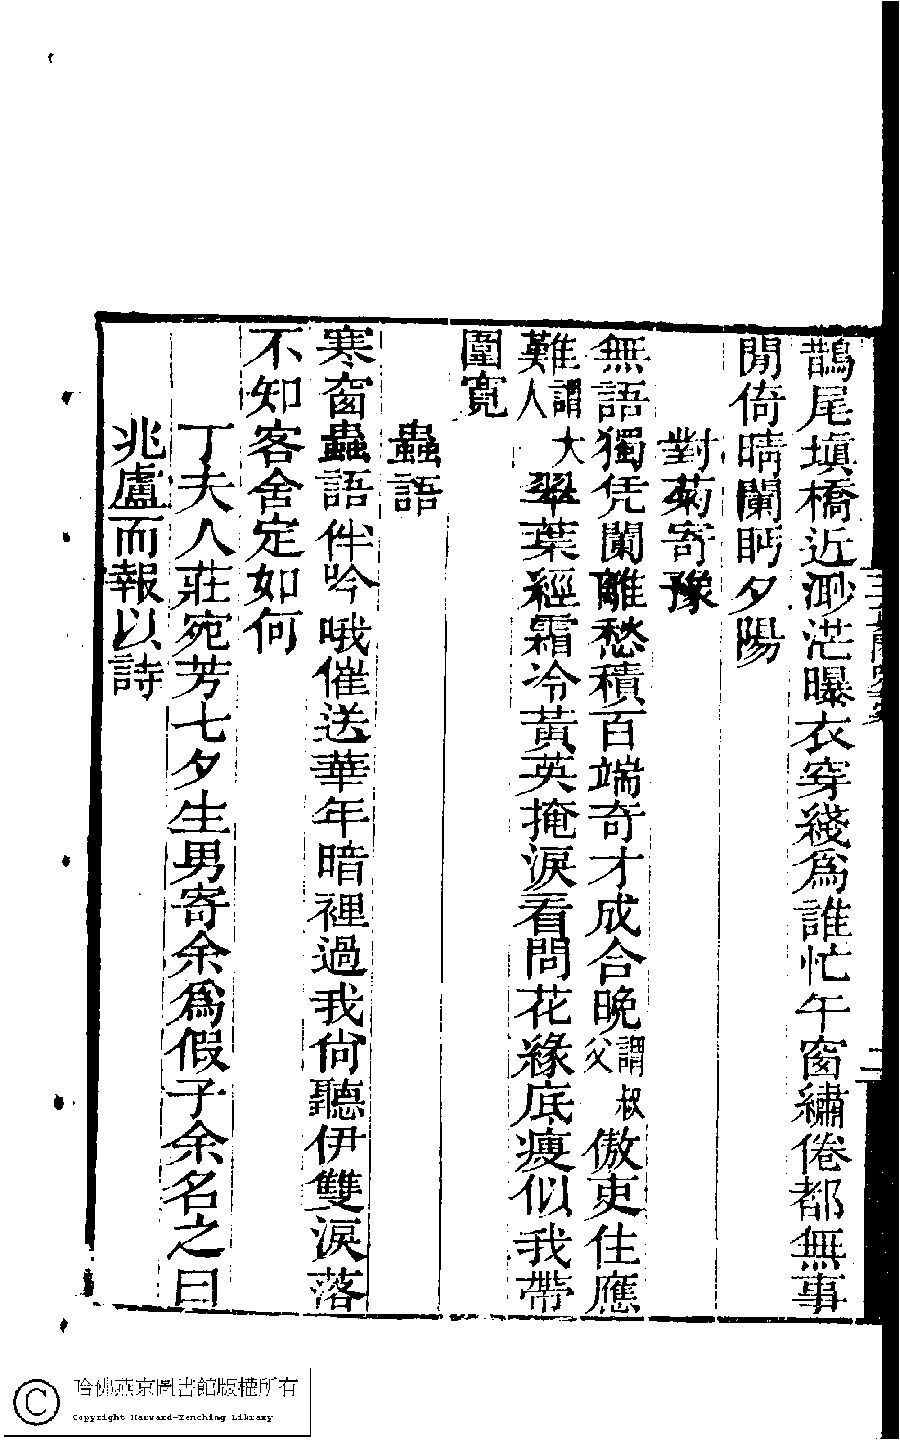 鵲尾塡橋近渺茫曝衣穿綫爲誰忙午窗繡倦都無事
閒倚晴闌眄夕陽
對菊寄豫
無語獨凭闌離愁積百端奇才成合晚謂叔父傲吏住應
難謂大人翠葉經霜冷黃英掩淚看問花緣底瘦似我帶
圍寬
蟲語
寒窗蟲語伴吟哦催送華年暗裡過我尙聽伊雙淚落
不知客舍定如何
丁夫人莊宛芳七夕生男寄余爲假子余名之曰
兆盧而報以詩
二
哈佛燕京圖書館版權所有
Copyright Harvard-Yenching Library